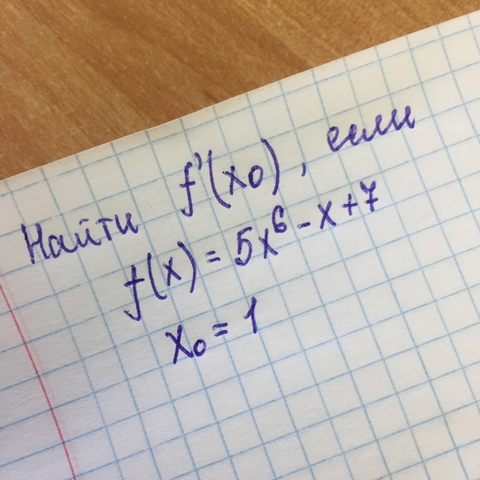 Найти f'(x0), если
f(x) = 5x⁶ - x + 7
x₀ = 1